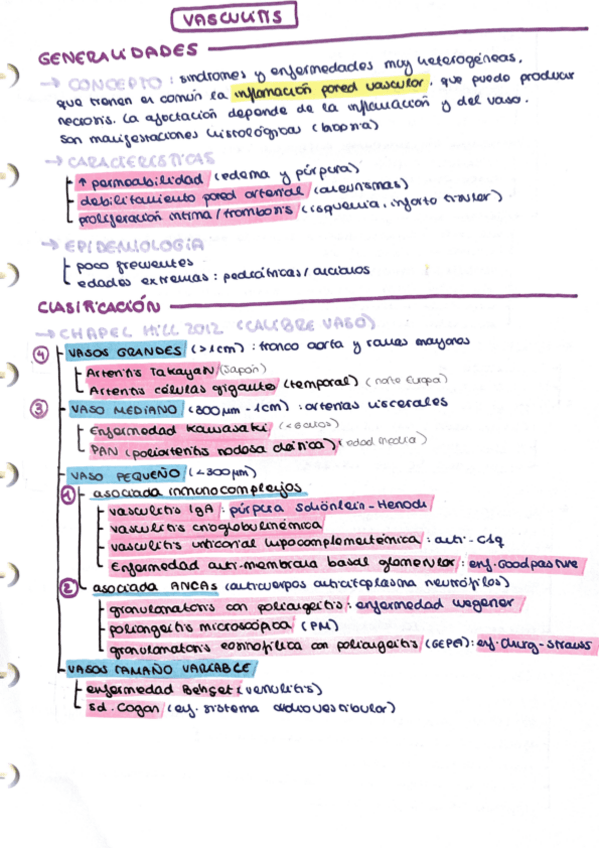 VASCULITIS
GENERALIDADES
→ CONCEPTO: síndromes y enfermedades muy heterogéneas,
que tienen en común la inflamación pared vascular, que puede producir
necrosis. La afectación depende de la inflamación y del vaso.
Son manifestaciones histológicas (biopsia)
→ CARACTERÍSTICAS
↑ permeabilidad (edema y púrpura)
debilitamiento pared arterial (aneurismas)
proliferación íntima / trombosis (isquemia, infarto tisular)
→ EPIDEMIOLOGÍA
poco frecuentes
edades extremas: pediátricas / ancianos
CLASIFICACIÓN
→ CHAPEL HILL 2012 (CALIBRE VASO)
④ VASOS GRANDES (>1cm): tronco aorta y ramas mayores
Arteritis Takayan (Japón)
Arteritis células gigante (temporal) (norte Europa)
③ VASO MEDIANO (300µm - 1cm): arterias viscerales
Enfermedad Kawasaki (<6 años)
PAN (poliarteritis nodosa clásica) (edad media)
VASO PEQUEÑO (<300µm)
① asociada inmunocomplejos
vasculitis IgA: púrpura Schönlein-Henoch
vasculitis crioglobulinémica
vasculitis urticarial hipocomplementémica: anti-C1q
Enfermedad anti-membrana basal glomerular: enf. Goodpasture
② asociada ANCAs (anticuerpos anticitoplasma neutrófilos)
granulomatosis con poliangeítis: enfermedad wegener
poliangeitis microscópica (PM)
granulomatosis eosinofílica con poliangeitis (GEPA): enf. Churg-Strauss
VASOS TAMAÑO VARIABLE
enfermedad Behçet (venulitis)
sd. Cogan (enf. sistema audiovestibular)